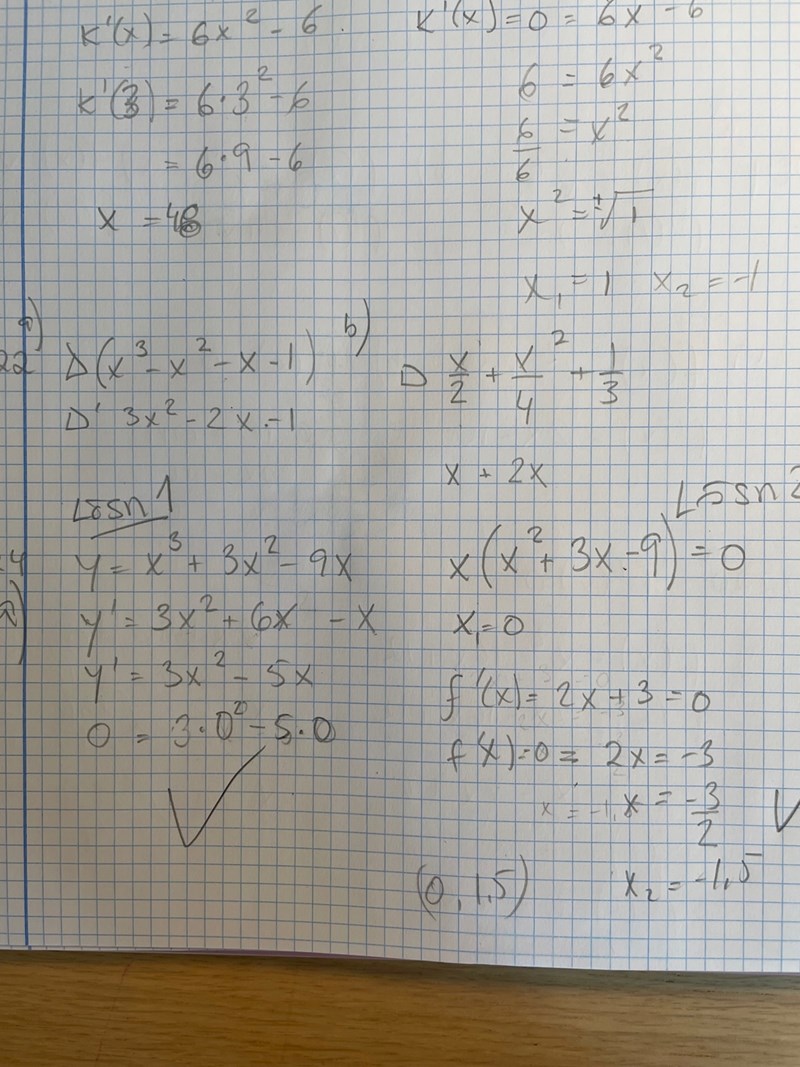 K'(x) = 6x² - 6
K'(3) = 6·3² - 6
= 6·9 - 6
x = 48
K'(x) = 0 = 6x - 6
6 = 6x²
6/6 = x²
x² = ±√1
x₁ = 1 x₂ = -1
a)
22 D(x³ - x² - x - 1)
D' 3x² - 2x - 1
b)
D x/2 + x²/4 + 1/3
x + 2x
Lösn 1
y = x³ + 3x² - 9x
a) y' = 3x² + 6x - x
y' = 3x² - 5x
0 = 3·0² - 5·0
Lösn 2
x(x² + 3x - 9) = 0
x₁ = 0
f'(x) = 2x + 3 = 0
f'(x) = 0 = 2x = -3
x = -3/2
(0, 1,5) x₂ = -1,5